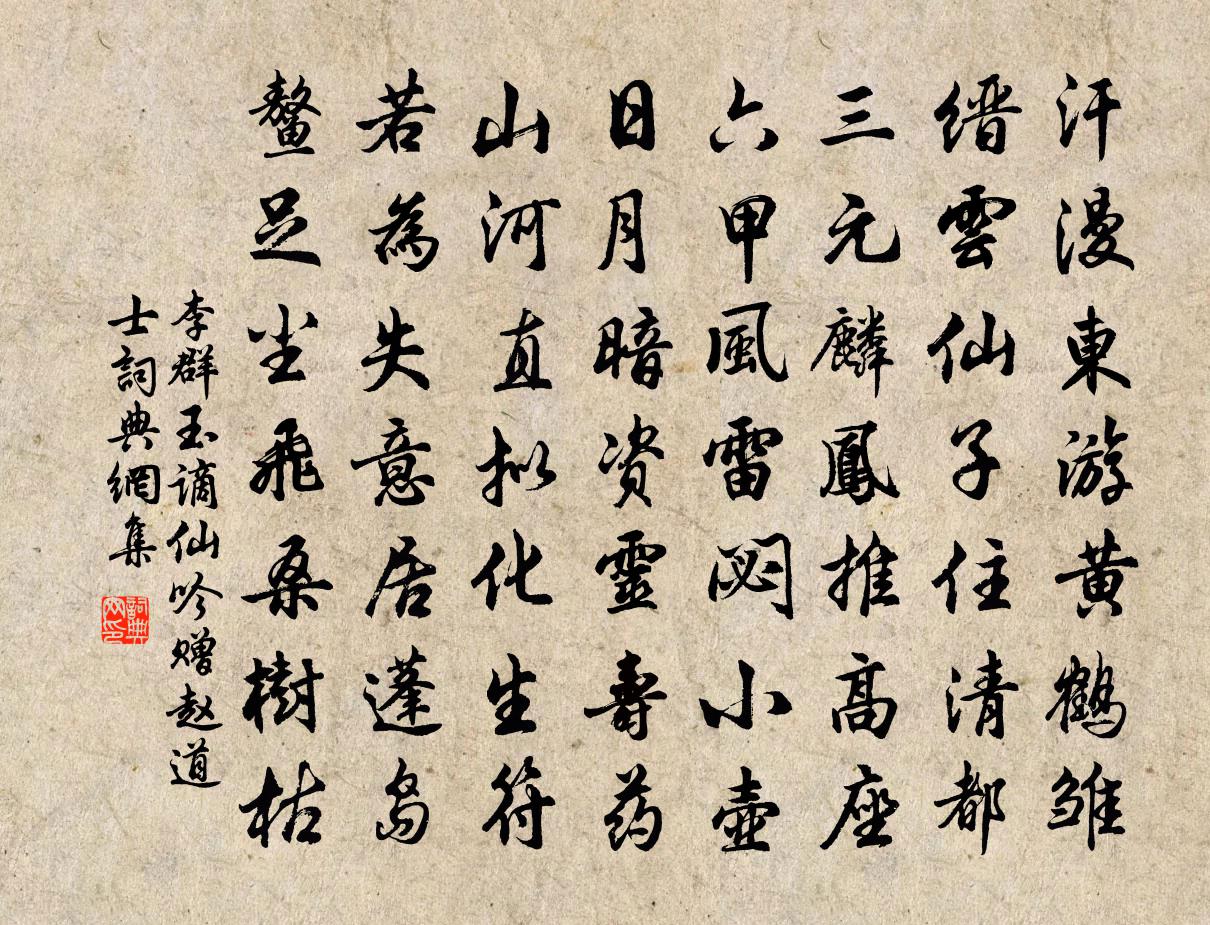 汗漫東游黄鶴雏
缙雲仙子住清都
三元麟鳳推高座
六甲風雷閟小壶
日月暗资靈壽药
山河直拟化生符
若為失意居蓬岛
鳌足尘飛桑樹枯
李群玉谪仙吟赠赵道
士詞典網集
詞典
网印